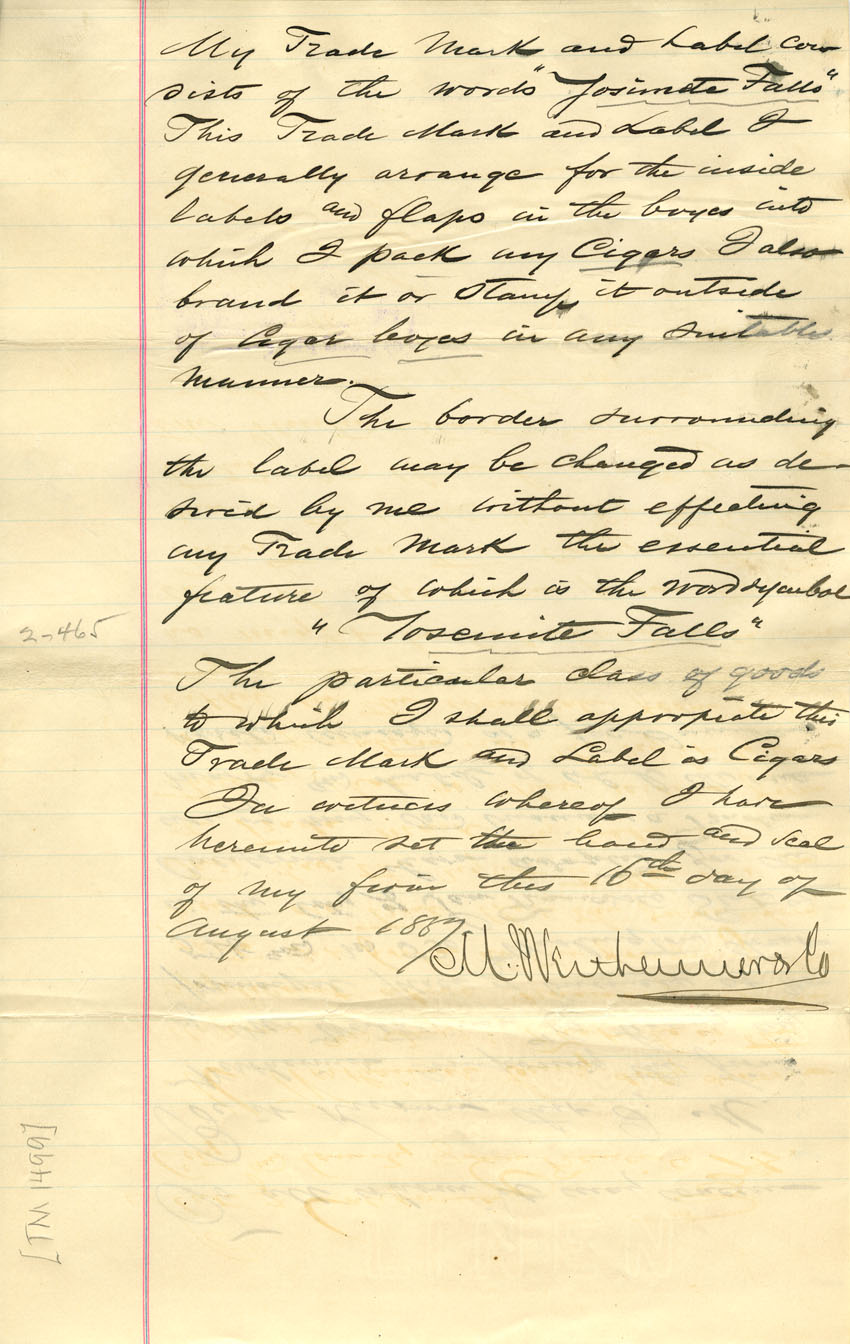 My Trade Mark and Label con
sists of the words "Yosimete Falls"
This Trade Mark and Label I
generally arrange for the inside
labels and flaps in the boxes into
which I pack my Cigars I also
brand it or stamp it outside
of Cigar boxes in any suitable
manner.
The border surrounding
the label may be changed as de-
sired by me without effecting
my Trade Mark the essential
feature of which is the word symbol
" Yosemite Falls"
2-465
The particular class of goods
to which I shall appropiate this
Trade Mark and Label is Cigars
In witness whereof I have
hereunto set the hand and seal
of my firm this 16th day of
August 1887
M. Wertheimer & Co
[TM 1499]